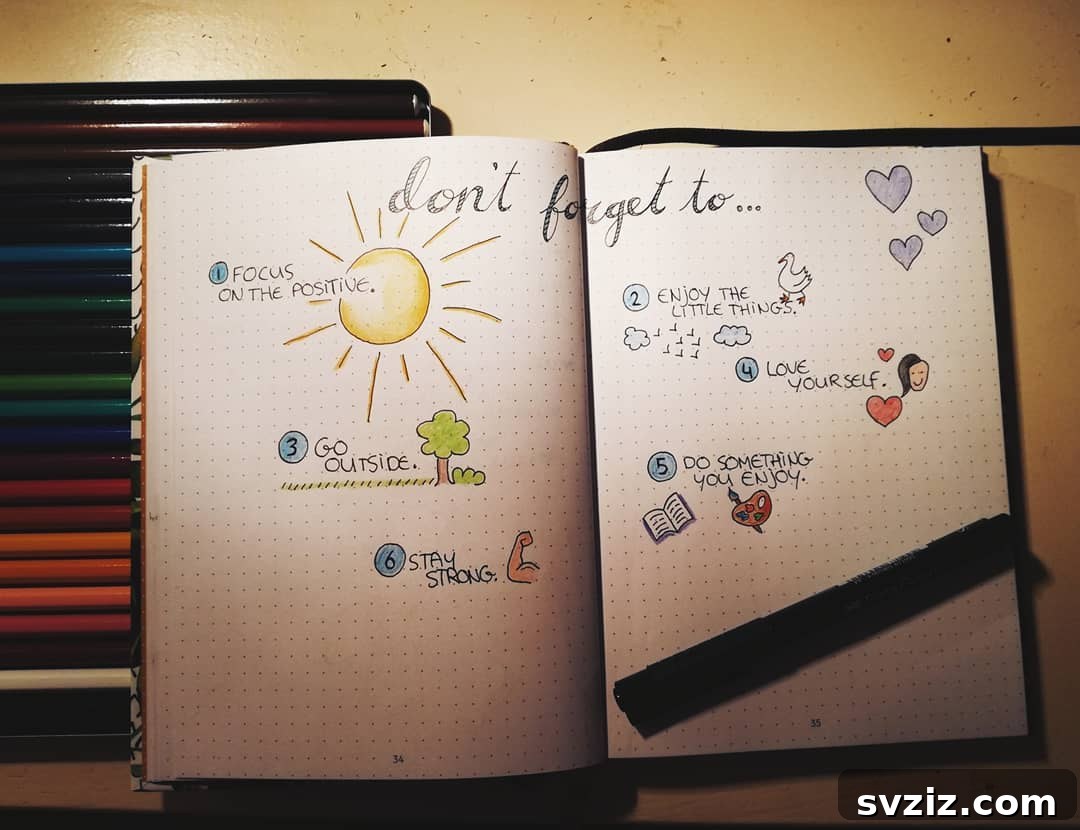 don't forget to...
1 FOCUS
ON THE POSITIVE.
2 ENJOY THE
LITTLE THINGS.
3 GO
OUTSIDE.
4 LOVE
YOURSELF.
5 DO SOMETHING
YOU ENJOY.
6 STAY
STRONG.
34
35
svziz.com